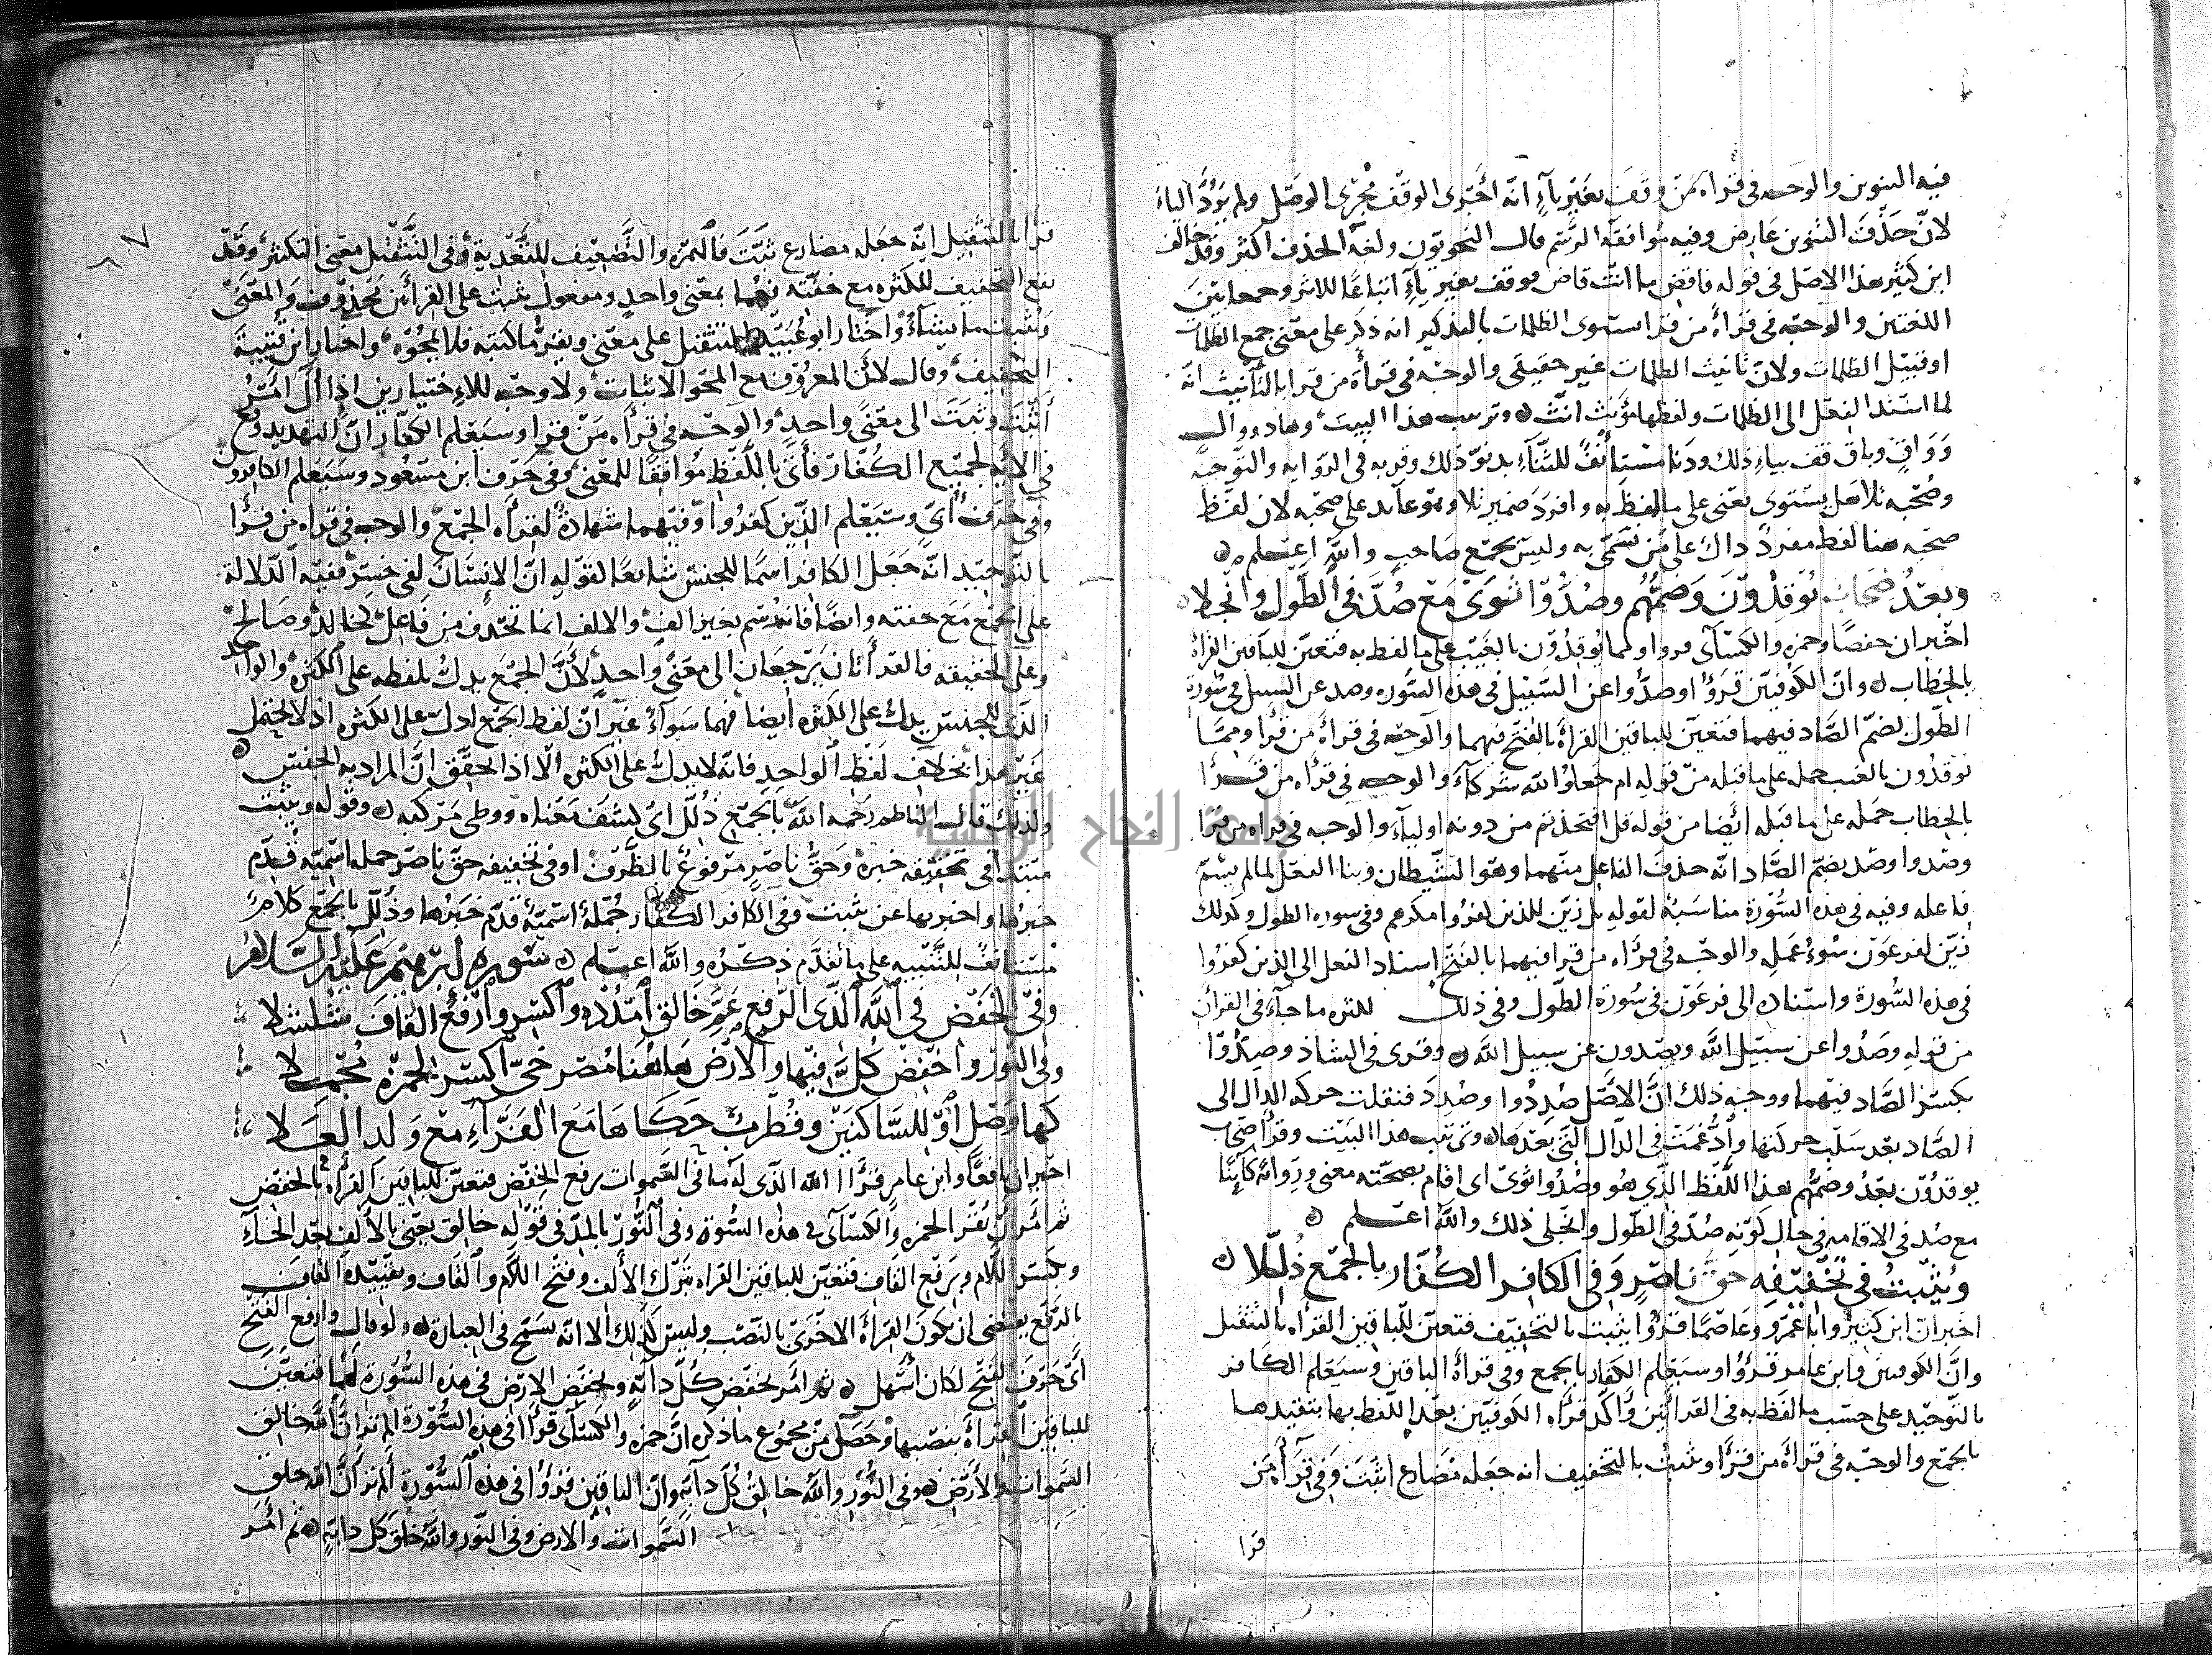 فيه التنوين والوجه في قراءة من وقف بغير ياء انه اجرى الوقف مجرى الوصل ولم يرد الياء
لان حذف التنوين عارض وفيه موافقه الرسم قال النحويون ولغة الحذف اكثر وقد خالف
ابن كثير هذا الاصل في قوله فاقض ما انت قاض فوقف بغير ياء اتباعا للاثر وجمعا بين
اللغتين والوجه في قراءة من قرا يستوى الظلمات بالتذكير انه ذكر على معنى جمع الظلمات
او قبيل الظلمات ولان تانيث الظلمات غير حقيقي والوجه في قراءة من قرا بالتأنيث انه
لما اسند الفعل الى الظلمات ولفظها مؤنث انث وترتيب هذا البيت وهاد ووال
وواق وباق قف بياء ذلك ودنا مستانف للثناء بدنو ذلك وقربه في الروايه والتوجيه
وصحبه تلا هل يستوى يعنى على ما لفظ به وافرد ضمير تلا وهو عائد على صحبه لان لفظ
صحبه هنا لفظ مفرد دال على من تسمى به وليس بجمع صاحب والله اعلم
وبعد صحاب يوقدون وضمهم وصدوا ثوى مع صد في الطول وانجلا
اخبر ان حفصا وحمزه والكسائي قروا ومما يوقدون بالغيب على ما لفظ به فتعين للباقين القراءة
بالخطاب وان الكوفيين قرؤا وصدوا عن السبيل في هذه السوره وصد عن السبيل في سورة
الطول بضم الصاد فيهما فتعين للباقين القراءة بالفتح فيهما والوجه في قراءة من قرا ومما
يوقدون بالغيب حمله على ما قبله من قوله ام جعلوا لله شركاء والوجه في قراءه من قرا
بالخطاب حمله على ما قبله ايضا من قوله قل افتخذتم من دونه اولياء والوجه في قراه من قرا
وصدوا وصد بضم الصاد انه حذف الفاعل منهما وهو الشيطان وبنا الفعل لما لم يسم
فاعله وفيه في هذه السورة مناسبة لقوله بل زين للذين كفروا مكرهم وفي سوره الطول وكذلك
زين لفرعون سوء عمله والوجه في قراءه من قرا فيهما بالفتح اسناد الفعل الى الذين كفروا
في هذه السورة واسناده الى فرعون في سورة الطول وفي ذلك لكثره ما جاء في القرآن
من قوله وصدوا عن سبيل الله ويصدون عن سبيل الله وقرى في الشاذ وصدوا
بكسر الصاد فيهما ووجه ذلك ان الاصل صددوا وصدد فنقلت حركه الدال الى
الصاد بعد سلب حركتها وادغمت في الدال التي بعدها وترتيب هذا البيت وقرا صحاب
يوقدون بعد وضمهم هذا اللفظ الذي هو وصدوا ثوى اى اقام بصحته معنى ورواية كائنا
مع صد في الاقامه في حال كونه صد في الطول وانجلى ذلك والله اعلم
ويثبت في تخفيفه حق ناصر وفي الكافر الكفار بالجمع ذللا
اخبر ان ابن كثير وابا عمرو وعاصما قرؤا يثبت بالتخفيف فتعين للباقين القراءة بالتثقيل
وان الكوفيين وابن عامر قرؤا وسيعلم الكفار بالجمع وفي قراءة الباقين وسيعلم الكافر
بالتوحيد على حسب ما لفظ به في القراءتين واكد قراءه الكوفيين بعد اللفظ بها بتقييدها
بالجمع والوجه في قراءة من قرا ويثبت بالتخفيف انه جعله مضارع اثبت وفي قراءة من
قرا
قرا بالتثقيل انه جعله مضارع ثبت فالهمزه والتضعيف للتعدية وفي التثقيل معنى التكثير وقد
يقع التخفيف للكثره مع خفته فهما بمعنى واحد ومفعول يثبت على القراءتين محذوف والمعنى
ويثبت ما يشاء واختار ابو عبيد التثقيل على معنى ويقر ما كتبه فلا يمحوه واختار ابن قتيبة
التخفيف وقال لان المعروف مع المحو الاثبات ولا وجه للاختيارين اذا آل امر
اثبت وثبت الى معنى واحد والوجه في قراءة من قرا وسيعلم الكفار ان التهديد وقع
في الآية لجميع الكفار فأتى باللفظ موافقا للمعنى وفي حرف ابن مسعود وسيعلم الكافرون
وفي حرف أبي وسيعلم الذين كفروا وفيهما شهادة لقراءه الجمع والوجه في قراه من قرا
بالتوحيد انه جعل الكافر اسما للجنس شائعا لقوله ان الانسان لفي خسر ففيه الدلالة
على الجمع مع خفته وايضا فانه رسم بغير الف والالف انما تحذف من فاعل كخالد وصالح
وعلى الحقيقه فالقراءتان يرجعان الى معنى واحد لأن الجمع يدل بلفظه على الكثره والواحد
الذى للجنس يدل على الكثره ايضا فهما سواء غير ان لفظ الجمع ادل على الكثره اذ لا يحتمل
غير هذا بخلاف لفظ الواحد فانه لا يدل على الكثره الا اذا تحقق ان المراد به الجنس
ولذلك قال الناظم رحمه الله بالجمع ذلل اى كشف معناه ووطى مركبه وقوله ويثبت
مبتدا في تخفيفه خبره وحق ناصر مرفوع بالظرف او في تخفيفه حق ناصر جمله اسميه قدم
خبرها واخبر بها عن يثبت وفي الكافر الكفار جملة اسمية قدم خبرها وذلل بالجمع كلام
مستانف للتنبيه على ما تقدم ذكره والله اعلم سورة ابرهيم عليه السلام
وفي الخفض في الله الذى الرفع عم خالق امدده واكسر وارفع القاف شلشلا
وفي النور واخفض كل فيها والارض ها هنا مصرخي اكسر لحمزة مجملا
كها وصل او للساكنين وقطرب حكاها مع الفراء مع ولد العلا
اخبر ان نافعا وابن عامر قرءا الله الذى له ما في السموات برفع الخفض فتعين للباقين القراءة بالخفض
ثم امر ان يقرا لحمزه والكسائي في هذه السورة وفي النور بالمد في قوله خالق يعنى بالألف بعد الخاء
وبكسر اللام وبرفع القاف فتعين للباقين القراءه بترك الألف وفتح اللام والقاف وتقييده القاف
بالرفع يقتضى ان يكون القراءة الاخرى بالنصب وليس كذلك الا انه تسمح في العبارة ولو قال وارفع الفتح
اى حرف الفتح لكان اسهل ثم امر بخفض كل دابة وبخفض الارض في هذه السورة لهما فتعين
للباقين القراءة بنصبها وحصل من مجموع ما ذكره ان حمزه والكسائي قرءا في هذه السورة الم تر ان الله خالق
السموات والأرض وفي النور والله خالق كل دابة وان الباقين قرؤا في هذه السورة الم تر ان الله خلق
السموات والارض وفي النور والله خلق كل دابة ثم امر